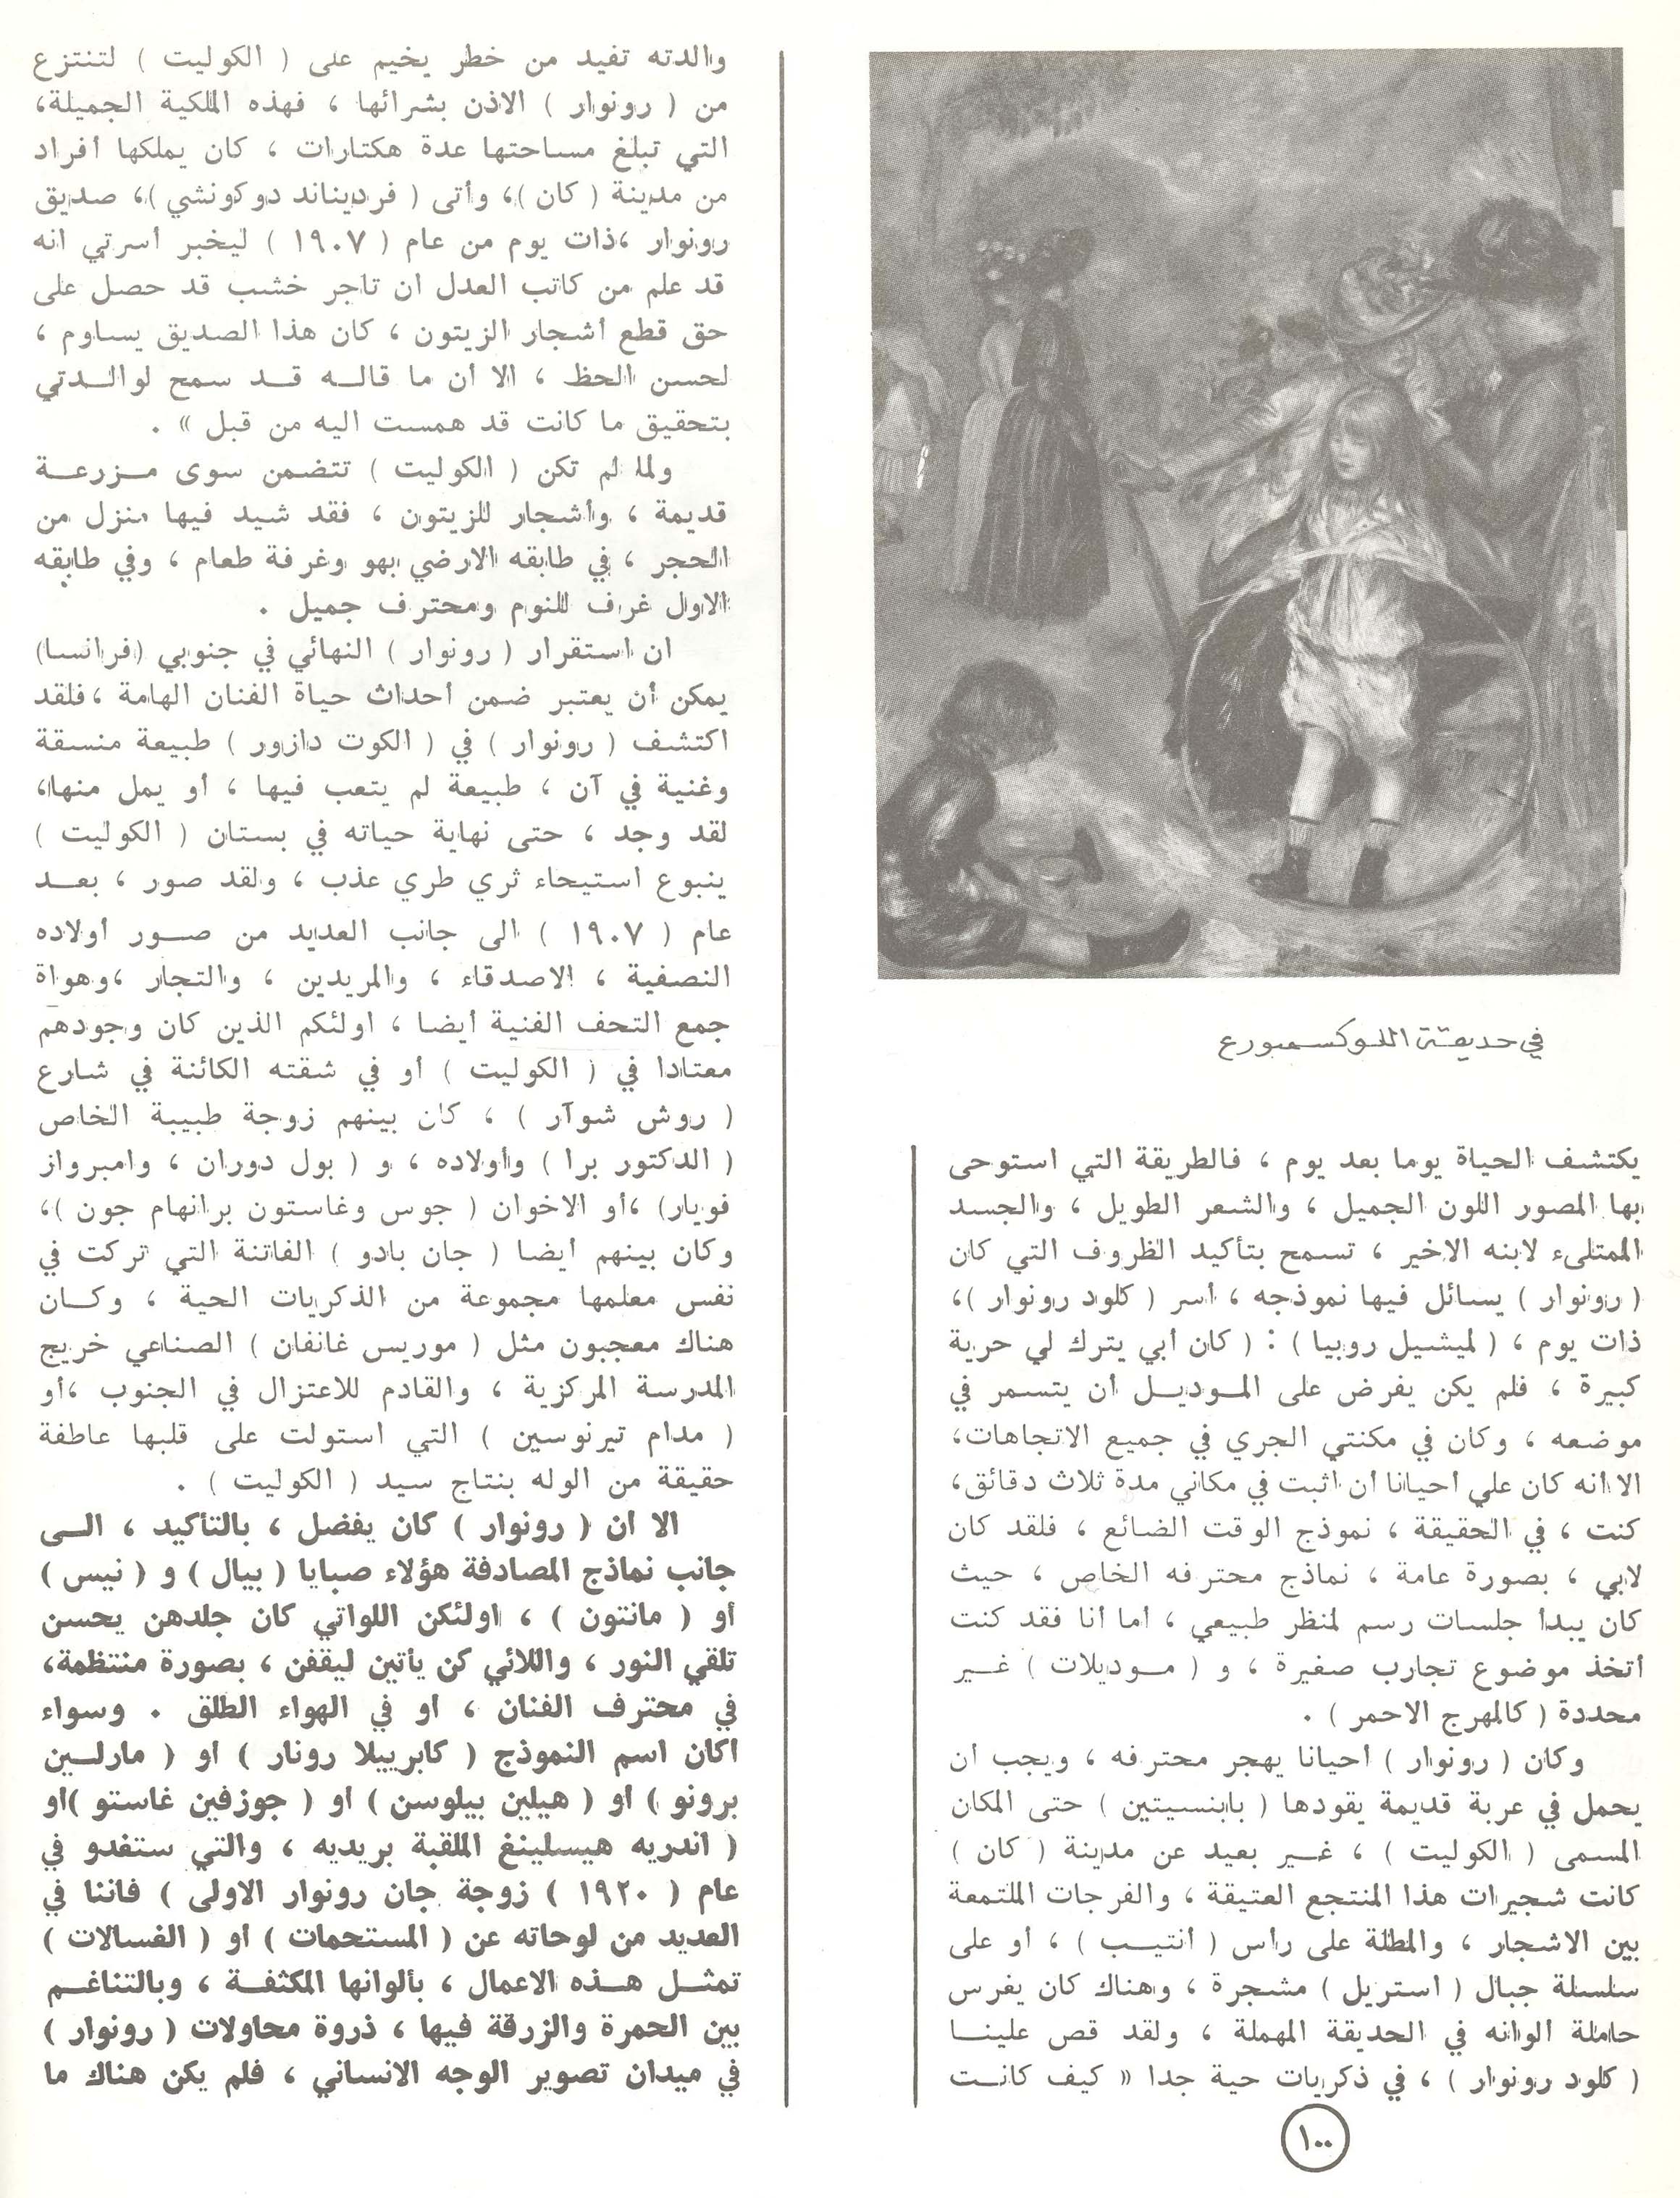 في حديقة اللوكسمبورغ
يكتشف الحياة يوما بعد يوم ، فالطريقة التي استوحى
بها المصور اللون الجميل ، والشعر الطويل ، والجسد
الممتلىء لابنه الاخير ، تسمح بتأكيد الظروف التي كان
( رونوار ) يسائل فيها نموذجه ، أسر ( كلود رونوار )،
ذات يوم ، ( لميشيل روبيا ) : ( كان أبي يترك لي حرية
كبيرة ، فلم يكن يفرض على الموديل أن يتسمر في
موضعه ، وكان في مكنتي الجري في جميع الاتجاهات،
الا أنه كان علي أحيانا أن أثبت في مكاني مدة ثلاث دقائق،
كنت ، في الحقيقة ، نموذج الوقت الضائع ، فلقد كان
لابي ، بصورة عامة ، نماذج محترفه الخاص ، حيث
كان يبدأ جلسات رسم لمنظر طبيعي ، أما أنا فقد كنت
أتخذ موضوع تجارب صغيرة ، و ( موديلات ) غير
محددة ( كالمهرج الاحمر ) .
وكان ( رونوار ) أحيانا يهجر محترفه ، ويجب أن
يحمل في عربة قديمة يقودها ( بابنسيتين ) حتى المكان
المسمى ( الكوليت ) ، غير بعيد عن مدينة ( كان )
كانت شجيرات هذا المنتجع العتيقة ، والفرجات الملتمعة
بين الاشجار ، والمطلة على رأس ( أنتيب ) ، أو على
سلسلة جبال ( استريل ) مشجرة ، وهناك كان يغرس
حاملة ألوانه في الحديقة المهملة ، ولقد قص علينا
( كلود رونوار ) ، في ذكريات حية جدا « كيف كانت
والدته تفيد من خطر يخيم على ( الكوليت ) لتنتزع
من ( رونوار ) الاذن بشرائها ، فهذه الملكية الجميلة،
التي تبلغ مساحتها عدة هكتارات ، كان يملكها أفراد
من مدينة ( كان )، وأتى ( فرديناند دوكونشي )، صديق
رونوار ،ذات يوم من عام ( ١٩٠٧ ) ليخبر أسرتي انه
قد علم من كاتب العدل ان تاجر خشب قد حصل على
حق قطع أشجار الزيتون ، كان هذا الصديق يساوم ،
لحسن الحظ ، الا أن ما قاله قد سمح لوالدتي
بتحقيق ما كانت قد همست اليه من قبل » .
ولما لم تكن ( الكوليت ) تتضمن سوى مزرعة
قديمة ، وأشجار للزيتون ، فقد شيد فيها منزل من
الحجر ، في طابقه الارضي بهو وغرفة طعام ، وفي طابقه
الاول غرف للنوم ومحترف جميل .
ان استقرار ( رونوار ) النهائي في جنوبي (فرانسا)
يمكن أن يعتبر ضمن أحداث حياة الفنان الهامة ،فلقد
اكتشف ( رونوار ) في ( الكوت دازور ) طبيعة منسقة
وغنية في آن ، طبيعة لم يتعب فيها ، أو يمل منها،
لقد وجد ، حتى نهاية حياته في بستان ( الكوليت )
ينبوع استيحاء ثري طري عذب ، ولقد صور ، بعد
عام ( ١٩٠٧ ) الى جانب العديد من صور أولاده
النصفية ، الاصدقاء ، والمريدين ، والتجار ،وهواة
جمع التحف الفنية أيضا ، أولئكم الذين كان وجودهم
معتادا في ( الكوليت ) أو في شقته الكائنة في شارع
( روش شوآر ) ، كان بينهم زوجة طبيبة الخاص
( الدكتور برا ) وأولاده ، و ( بول دوران ، وامبرواز
فويار) ،أو الاخوان ( جوس وغاستون برانهام جون )،
وكان بينهم أيضا ( جان بادو ) الفاتنة التي تركت في
نفس معلمها مجموعة من الذكريات الحية ، وكان
هناك معجبون مثل ( موريس غانفان ) الصناعي خريج
المدرسة المركزية ، والقادم للاعتزال في الجنوب ،أو
( مدام تيرنوسين ) التي استولت على قلبها عاطفة
حقيقة من الوله بنتاج سيد ( الكوليت ) .
الا أن ( رونوار ) كان يفضل ، بالتأكيد ، الى
جانب نماذج المصادفة هؤلاء صبايا ( بيال ) و ( نيس )
أو ( مانتون ) ، أولئكن اللواتي كان جلدهن يحسن
تلقي النور ، واللائي كن يأتين ليقفن ، بصورة منتظمة،
في محترف الفنان ، او في الهواء الطلق . وسواء
أكان اسم النموذج ( كابرييلا رونار ) أو ( مارلين
برونو ) أو ( هيلين بيلوسن ) أو ( جوزفين غاستو )أو
( اندريه هيسلينغ الملقبة بريديه ، والتي ستغدو في
عام ( ١٩٢٠ ) زوجة جان رونوار الاولى ) فاننا في
العديد من لوحاته عن ( المستحمات ) أو ( الغسالات )
تمثل هذه الاعمال ، بألوانها المكثفة ، وبالتناغم
بين الحمرة والزرقة فيها ، ذروة محاولات ( رونوار )
في ميدان تصوير الوجه الانساني ، فلم يكن هناك ما
١٠٠